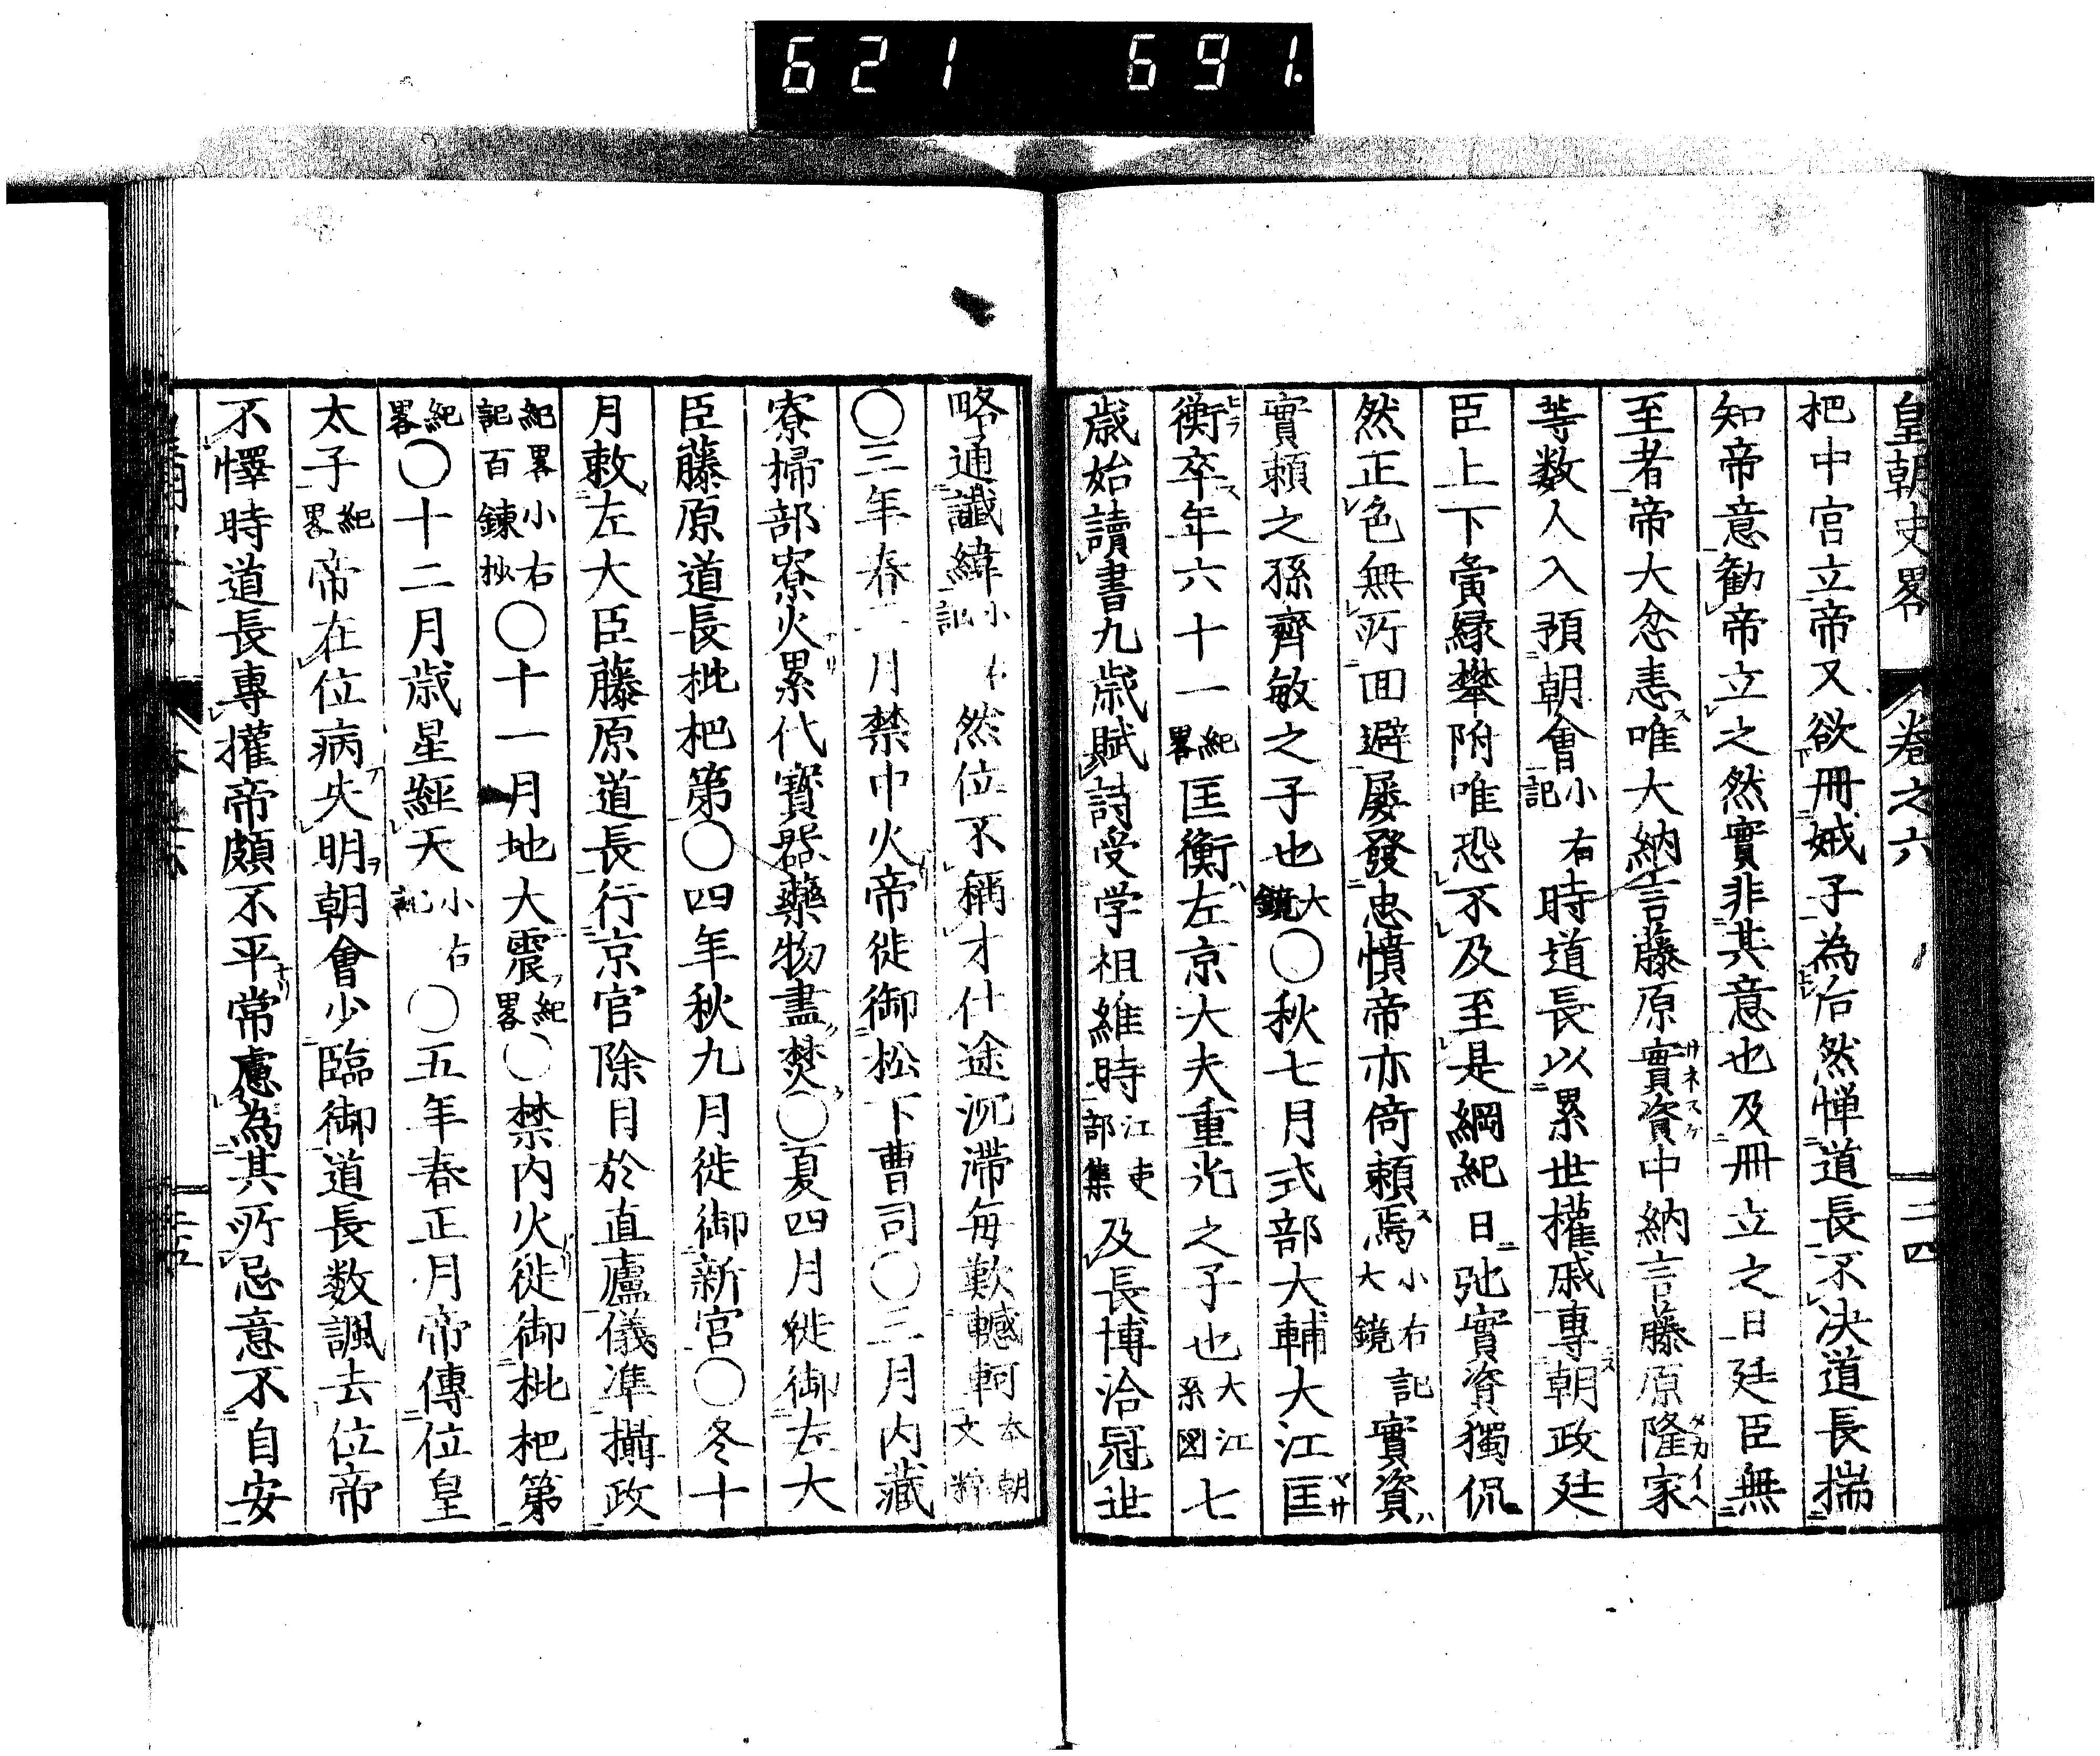 621 691.
皇朝史畧 卷之六 二四
把中宮立帝又欲冊娍子為后然憚道長不决道長揣
知帝意勧帝立之然實非其意也及冊立之日廷臣無
至者帝大忿恚唯大納言藤原實資中納言藤原隆家
等数人入預朝會小右記時道長以累世權戚專朝政廷
臣上下夤縁攀附唯恐不及至是綱紀日弛實資獨侃
然正色無所回避屡發忠憤帝亦倚頼焉小右記大鏡實資
實頼之孫齊敏之子也大鏡〇秋七月式部大輔大江匡
衡卒年六十一紀畧匡衡左京大夫重光之子也大江系図七
歳始讀書九歳賦詩受学祖維時江吏部集及長博洽冠世
略通讖緯小右記然位不稱才仕途沉滯毎歎轗軻本朝文粹
〇三年春二月禁中火帝徙御松下曹司〇三月内藏
寮掃部寮火累代寶器藥物盡焚〇夏四月徙御左大
臣藤原道長枇杷第〇四年秋九月徙御新宮〇冬十
月敕左大臣藤原道長行京官除目於直廬儀準攝政
紀畧小右記百鍊抄〇十一月地大震紀畧〇禁内火徙御枇杷第
紀畧〇十二月歳星經天小右記〇五年春正月帝傳位皇
太子紀畧帝在位病失明朝會少臨御道長数諷去位帝
不懌時道長專權帝頗不平常慮為其所忌意不自安